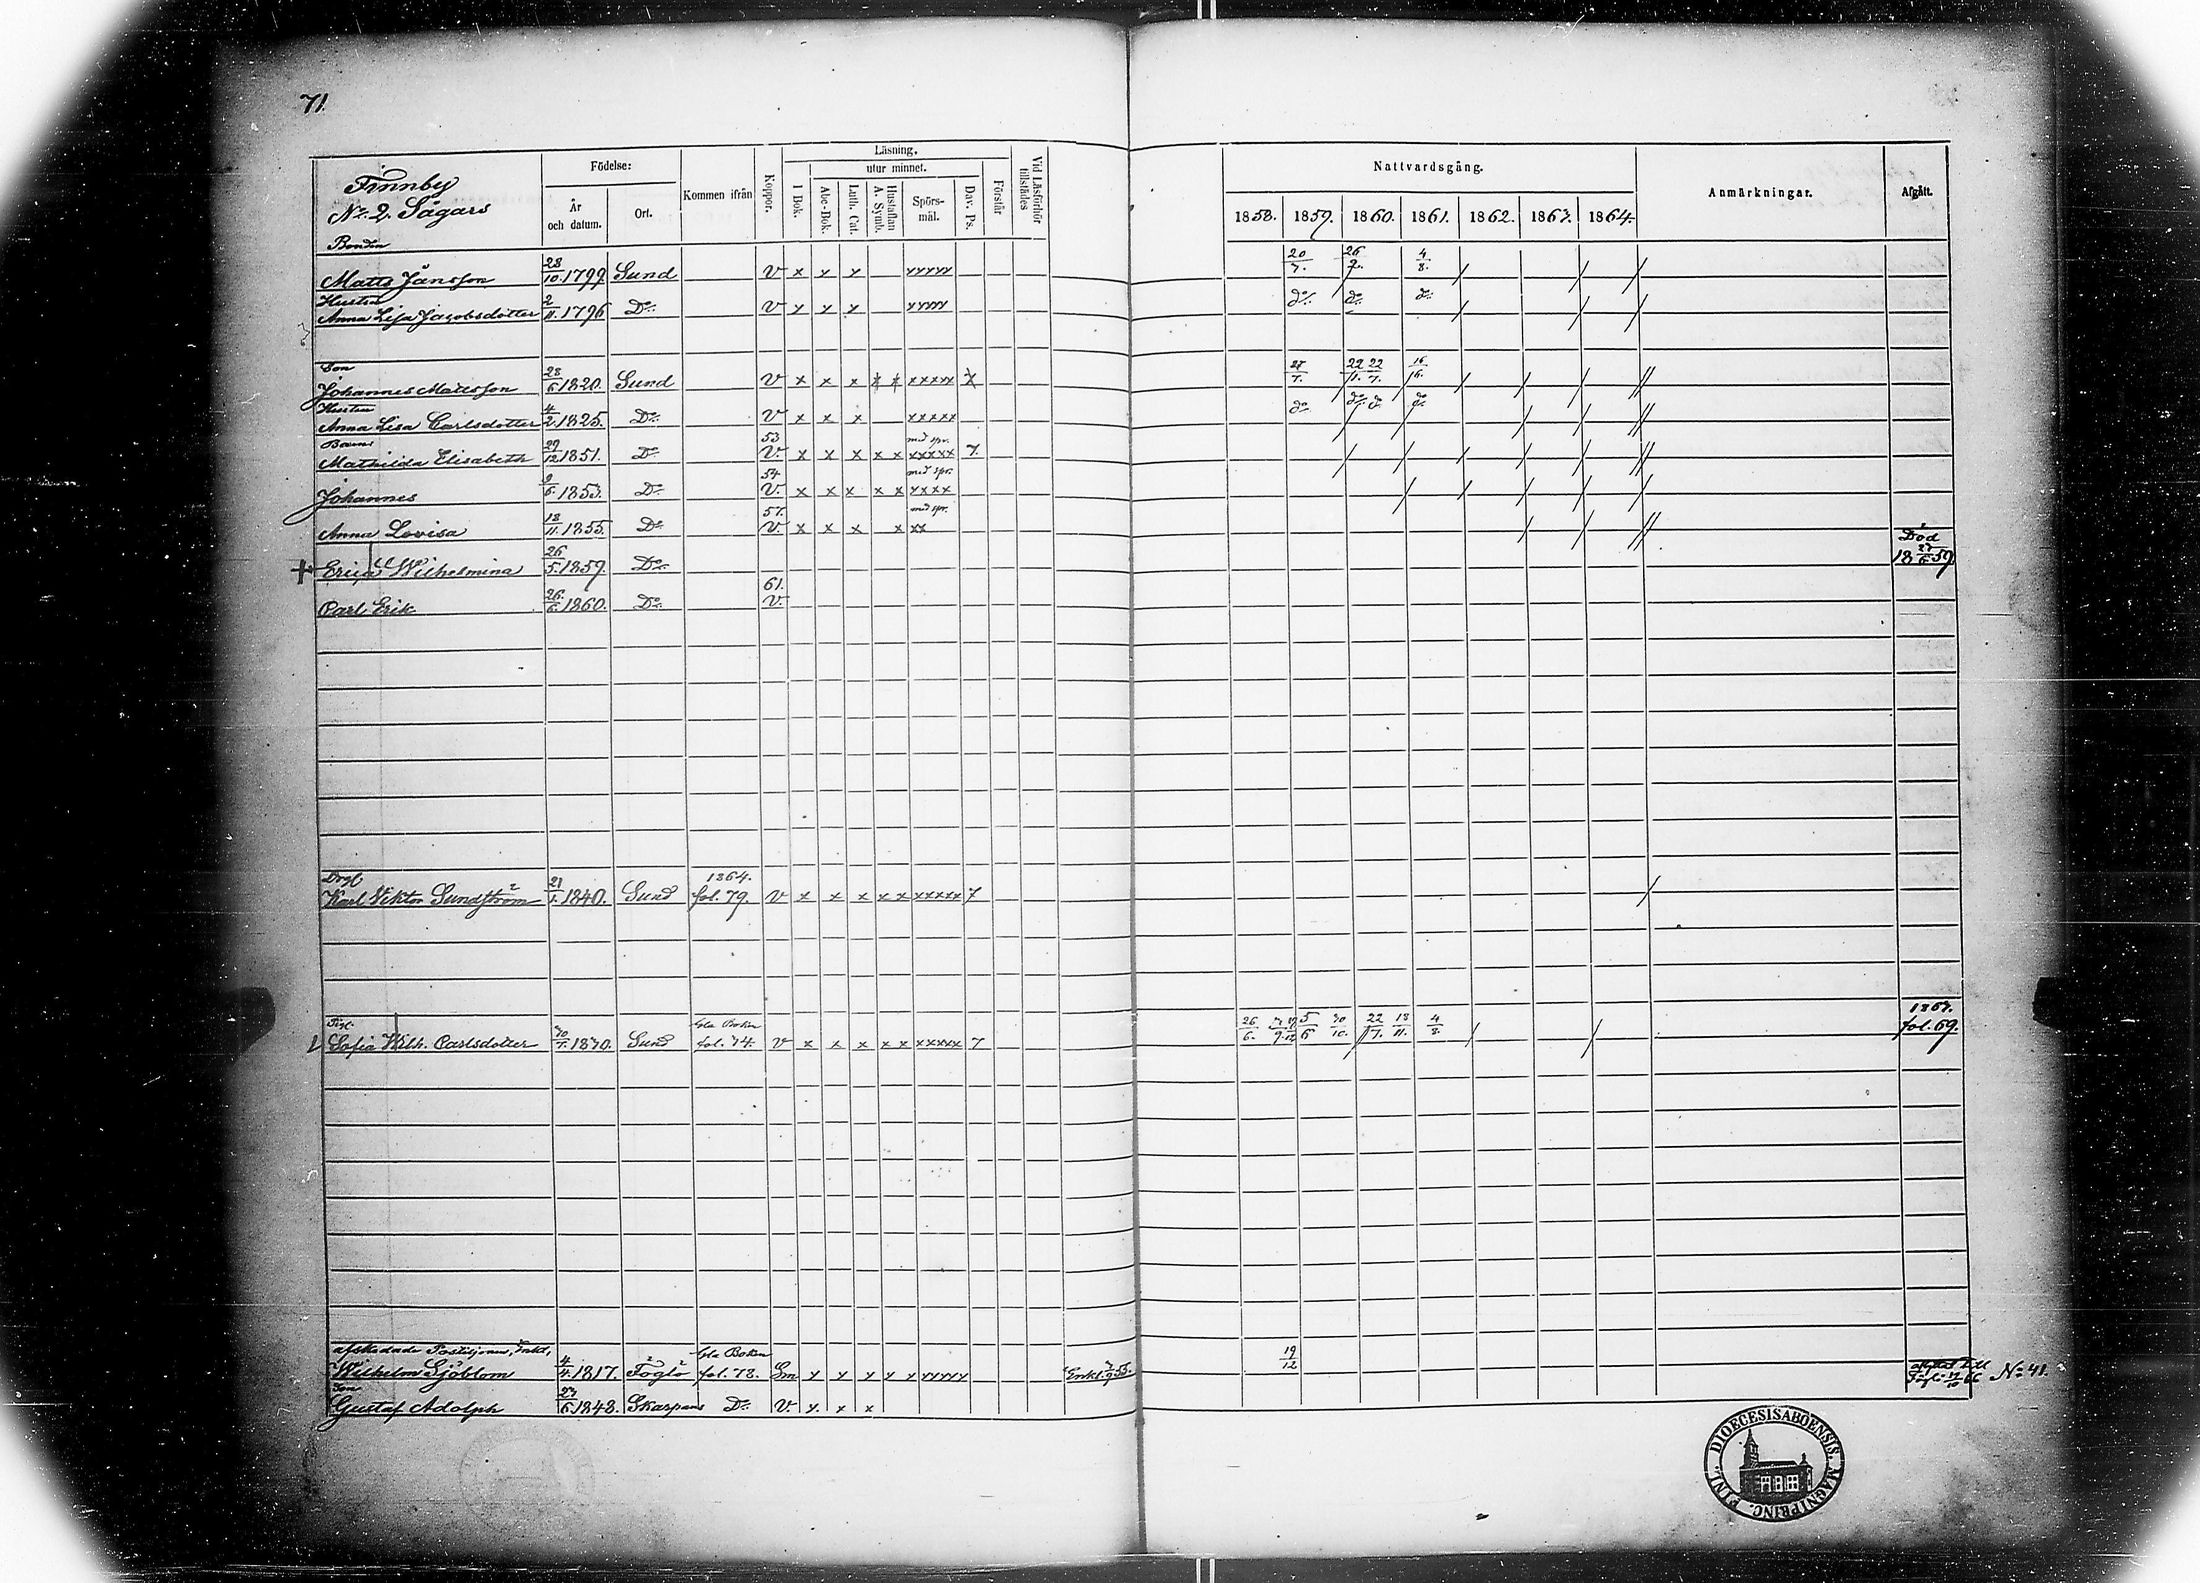 71.
Finnby
No. 2. Sågars
Födelse:
År och datum.
Ort.
Kommen ifrån
Koppor.
Läsning.
utur minnet.
I Bok.
Abc-Bok.
Luth. Cat.
Hustaflan A. Symb.
Spörs-mål.
Dav. Ps.
Förstår
Vid Läsförhör tillstädes
Nattvardsgång.
1858. 1859. 1860. 1861. 1862. 1863. 1864.
Anmärkningar.
Afgått.
Bonden
Matts Jansson 28/10 1799 Sund v x x x xxxxx 20/7. 26/7. 4/8.
Hustru
Anna Lisa Jacobsdotter 2/11. 1796 Do v x x x xxxxx do do do
Son
Johannes Mattsson 28/6 1820. Sund v x x x x x xxxxx x 22/11. 22/7. 16/6.
Hustru
Anna Lisa Carlsdotter 4/2. 1825. Do v x x x xxxxx do do do do
Barn
Mathilda Elisabeth 29/12 1851. Do 53 v. x x x x x med spr. xxxxx 7.
Johannes 9/6. 1853. Do 54 v. x x x x x med spr. xxxx
Anna Lovisa 18/11. 1855. Do 57. v. x x x x med spr. xx
+ Erica Wilhelmina 26/5. 1859. Do Död 18 27/6 59
Carl Erik 26/6 1860. Do 61. v.
Drgl
Karl Viktor Sundström 21/1. 1840. Sund 1864. fol. 79. v x x x x x xxxxx 7
Pigl.
Sofia Wilh. Carlsdotter 30/7. 1840. Sund fol. 74. v x x x x x xxxxx 7 26/6. 5/6 30/10. 22/7. 18/11. 4/8. 1863. fol. 69.
afskedade Postiljonen, Enkl,
Wilhelm Sjöblom 4/4. 1817. Föglö fol. 78. Sm x x x x x xxxxx 19/12 No 41.
Son
Gustaf Adolph 27/6. 1848. Skarpans Do v. x. x x
DIOECESIS ABOENSIS. MAGNI PRINC. FINL.